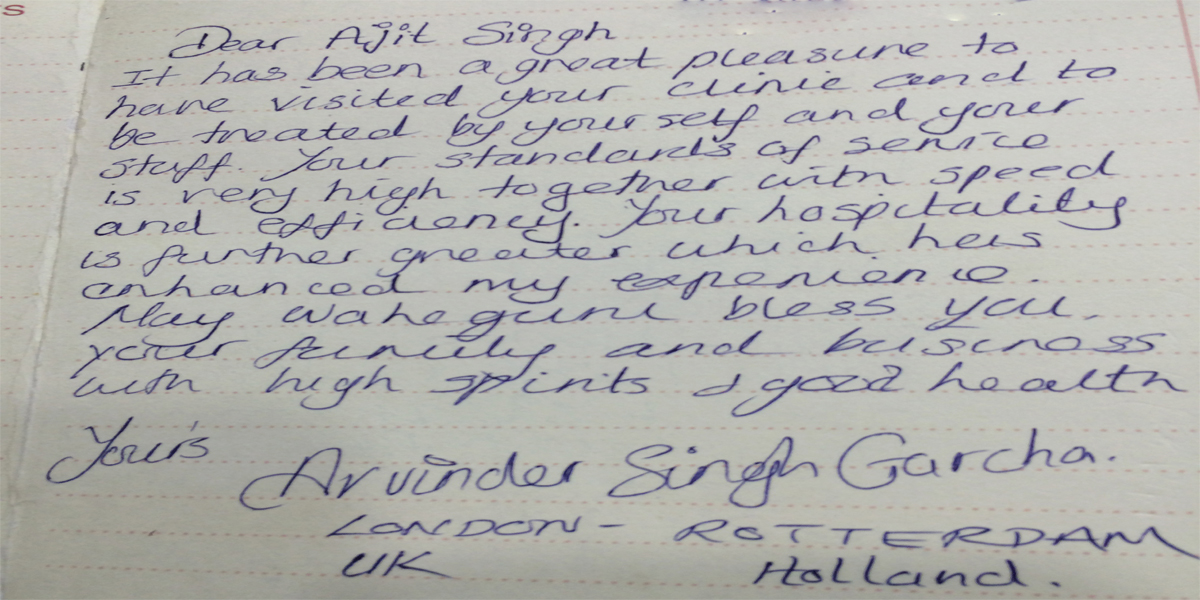 Dear Ajit Singh
It has been a great pleasure to
have visited your clinic and to
be treated by yourself and your
staff. Your standards of service
is very high together with speed
and efficiency. Your hospitality
is further greater which has
enhanced my experience.
May waheguru bless you,
your family and business
with high spirits & good health
Your's
Arvinder Singh Garcha.
LONDON - ROTTERDAM
UK Holland.